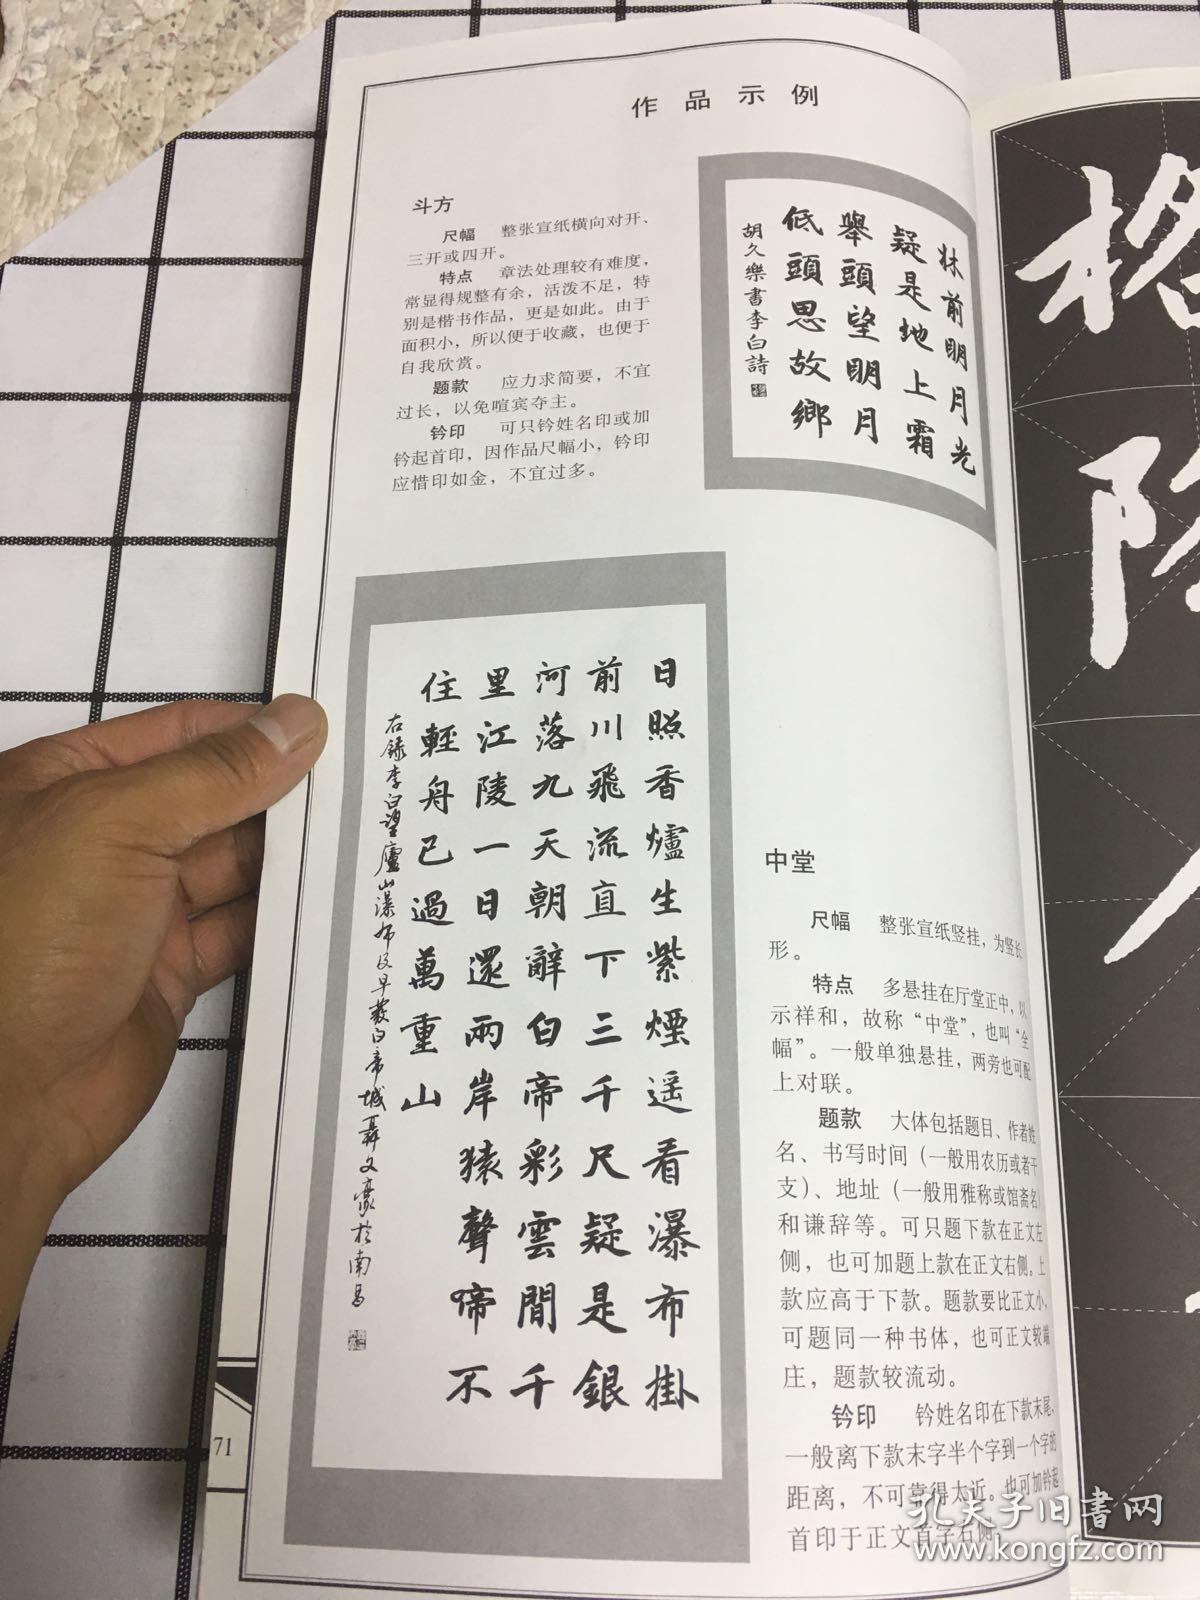 作品示例
斗方
尺幅 整张宣纸横向对开、
三开或四开。
特点 章法处理较有难度，
常显得规整有余，活泼不足，特
别是楷书作品，更是如此。由于
面积小，所以便于收藏，也便于
自我欣赏。
题款 应力求简要，不宜
过长，以免喧宾夺主。
钤印 可只钤姓名印或加
钤起首印，因作品尺幅小，钤印
应惜印如金，不宜过多。
牀前明月光
疑是地上霜
舉頭望明月
低頭思故鄉
胡久樂書李白詩
日照香爐生紫煙遥看瀑布掛
前川飛流直下三千尺疑是銀
河落九天朝辭白帝彩雲間千
里江陵一日還兩岸猿聲啼不
住輕舟已過萬重山
右録李白望廬山瀑布及早發白帝城聶文豪於南昌
中堂
尺幅 整张宣纸竖挂，为竖长
形。
特点 多悬挂在厅堂正中，以
示祥和，故称“中堂”，也叫“全
幅”。一般单独悬挂，两旁也可配
上对联。
题款 大体包括题目、作者姓
名、书写时间（一般用农历或者干
支）、地址（一般用雅称或馆斋名）
和谦辞等。可只题下款在正文左
侧，也可加题上款在正文右侧。上
款应高于下款。题款要比正文小，
可题同一种书体，也可正文较端
庄，题款较流动。
钤印 钤姓名印在下款末尾、
一般离下款末字半个字到一个字的
距离，不可靠得太近。也可加钤起
首印于正文首字右侧。
71
格
孔夫子旧书网
www.kongfz.com